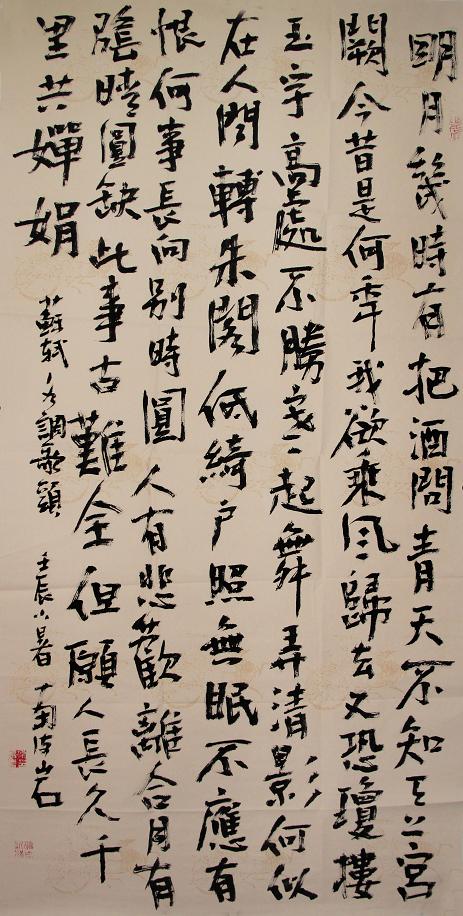 明月幾時有把酒問青天不知天上宮
闕今昔是何年我欲乘風歸去又恐瓊樓
玉宇高處不勝寒起舞弄清影何似
在人間轉朱閣低綺户照無眠不應有
恨何事長向别時圓人有悲歡離合月有
陰晴圓缺此事古難全但願人長久千
里共嬋娟
蘇軾水調歌頭 壬辰小暑